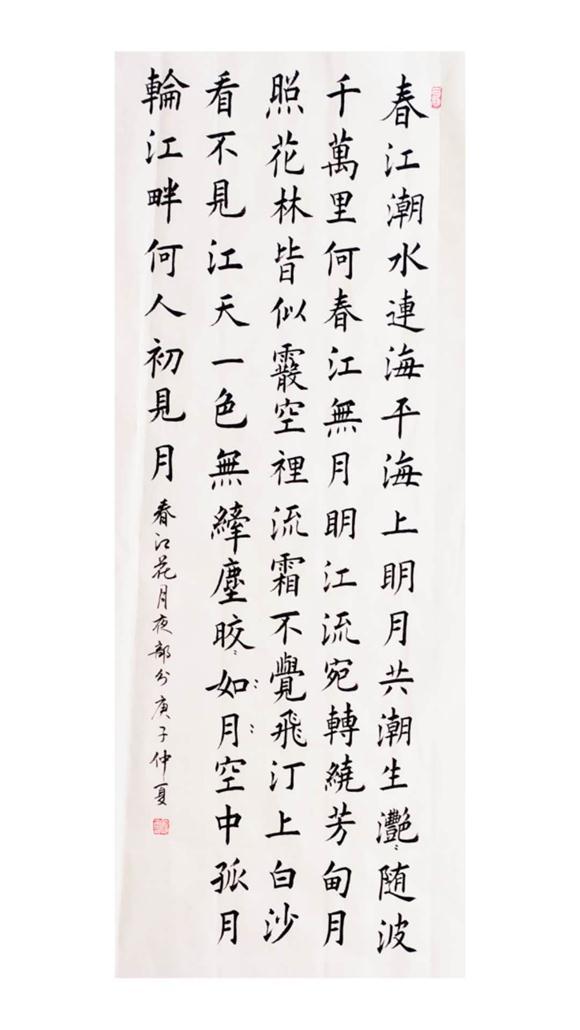 春江潮水連海平海上明月共潮生灩〻随波
千萬里何春江無月明江流宛轉繞芳甸月
照花林皆似霰空裡流霜不覺飛汀上白沙
看不見江天一色無纖塵晈〻如〻月〻空中孤月
輪江畔何人初見月
春江花月夜部分 庚子仲夏